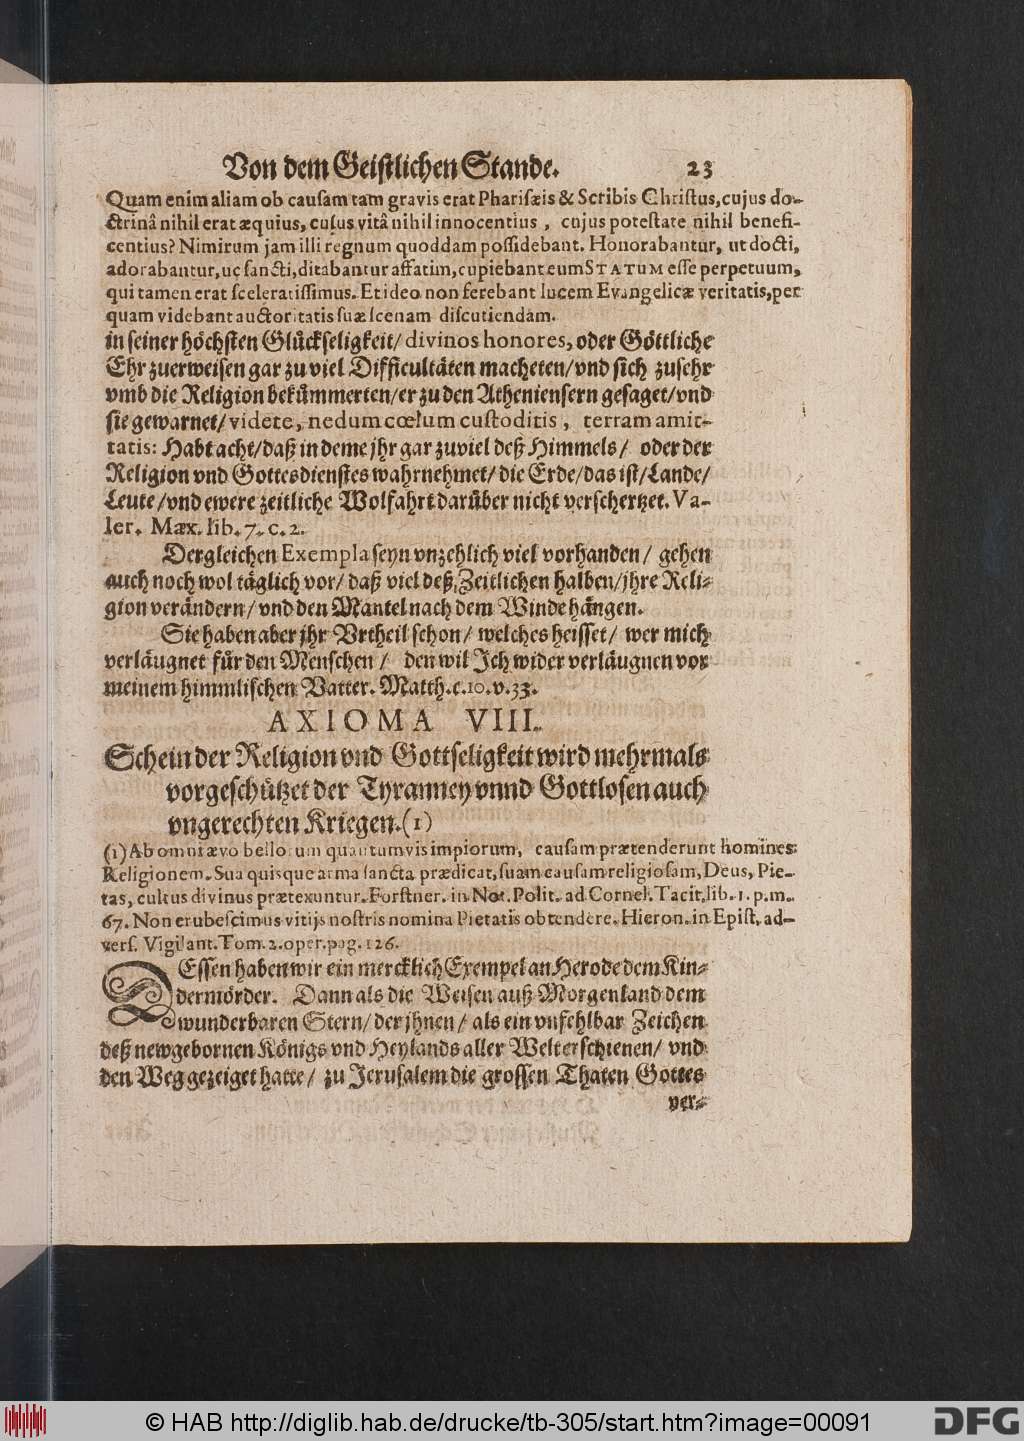 Von dem Geistlichen Stande. 23
Quam enim aliam ob causam tam gravis erat Pharisæis & Scribis Christus, cujus do-
ctrinâ nihil erat æquius, cujus vitâ nihil innocentius, cujus potestate nihil benefi-
centius? Nimirum jam illi regnum quoddam possidebant. Honorabantur, ut docti,
adorabantur, ut sancti, ditabantur affatim, cupiebant eum STATUM esse perpetuum,
qui tamen erat sceleratissimus. Et ideo non ferebant lucem Evangelicæ veritatis, per
quam videbant auctoritatis suæ scenam discutiendam.
in seiner höchsten Glückseligkeit/ divinos honores, oder Göttliche
Ehr zuerweisen gar zu viel Difficultäten macheten/ vnd sich zusehr
vmb die Religion bekümmerten/ er zu den Atheniensern gesaget/ vnd
sie gewarnet/ videte, ne dum cœlum custoditis, terram amit-
tatis: Habt acht/ daß in deme jhr gar zuviel deß Himmels/ oder der
Religion vnd Gottesdienstes wahrnehmet/ die Erde/ das ist/ Lande/
Leute/ vnd ewere zeitliche Wolfahrt darüber nicht verschertzet. Va-
ler. Max. lib. 7. c. 2.
Dergleichen Exempla seyn vnzehlich viel vorhanden/ gehen
auch noch wol täglich vor/ daß viel deß Zeitlichen halben/ jhre Reli-
gion verändern/ vnd den Mantel nach dem Winde hängen.
Sie haben aber jhr Vrtheil schon/ welches heisset/ wer mich
verläugnet für den Menschen/ den wil Jch wider verläugnen vor
meinem himmlischen Vatter. Matth. c. 10. v. 33.
AXIOMA VIII.
Schein der Religion vnd Gottseligkeit wird mehrmals
vorgeschützet der Tyranney vnnd Gottlosen auch
vngerechten Kriegen. (1)
(1) Ab omni ævo bellorum quantumvis impiorum, causam prætenderunt homines
Religionem. Sua quisque arma sancta prædicat, suam causam religiosam, Deus, Pie-
tas, cultus divinus prætexuntur. Forstner. in Not. Polit. ad Cornel. Tacit. lib. 1. p. m.
67. Non erubescimus vitijs nostris nomina Pietatis obtendere. Hieron. in Epist. ad-
vers. Vigilant. Tom. 2. oper. pag. 126.
DEssen haben wir ein mercklich Exempel an Herode dem Kin-
dermörder. Dann als die Weisen auß Morgenland dem
wunderbaren Stern/ der jhnen/ als ein vnfehlbar Zeichen
deß newgebornen Königs vnd Heylands aller Welt erschienen/ vnd
den Weg gezeiget hatte/ zu Jerusalem die grossen Thaten Gottes
ver-
© HAB http://diglib.hab.de/drucke/tb-305/start.htm?image=00091
DFG